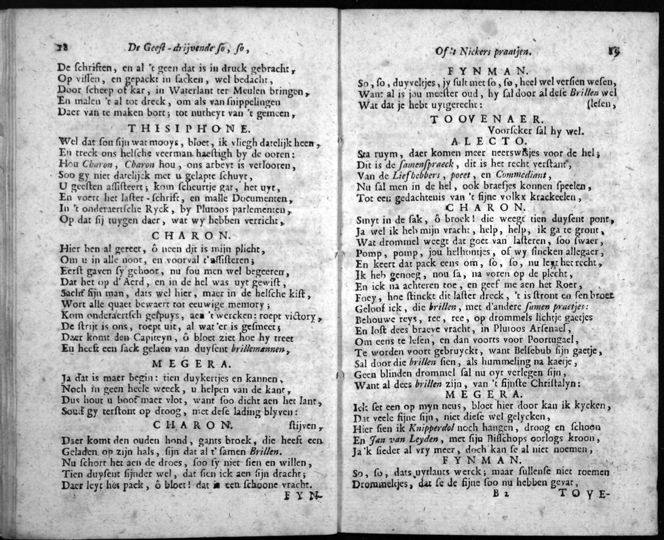 18 De Geest-drijvende so, so,
De schriften, en al 't geen dat is in druck gebracht,
Op vissen, en gepackt in sacken, wel bedacht,
Door scheep of kar, in Waterlant ter Meulen bringen,
En malen 't al tot dreck, om als van snippelingen
Daer van te maken bort; tot nutheyt van 't gemeen,
THISIPHONE.
Wel dat sou sijn wat mooys, bloet, ik vliegh datelijk heen,
En treck ons helsche veerman haestigh by de ooren:
Hou Charon, Charon hou, ons arbeyt is verlooren,
Soo gy niet datelijck met u gelapte schuyt,
U geesten assisteert; kom scheurtje gar, het uyt,
En voert het laster-schrift, en malle Documenten,
In 't onderaertsche Ryck, by Plutoos parlementen,
Op dat sij tuygen daer, wat wy hebben verricht.
CHARON.
Hier ben al gereet, ô neen dit is mijn plicht,
Om u in alle noot, en voorval t'assisteren;
Eerst gaven sy gehoor, nu sou men wel begeeren,
Dat het op d'Aerd, en in de hel was uyt gewist,
Sacht sijn man, dats wel hier, maer in de helsche kist,
Wort alle quaet bewaert tot eeuwige memory;
Kom onderaertsch gespuys, aen 't wercken: roept victory,
De strijt is ons, roept uit, al wat 'er is gesmeet;
Daer komt den Capiteyn, ô bloet ziet hoe hy treet
En heeft een sack gelaen van duysent brillemannen,
MEGERA.
Ja dat is maer begin: tien duykertjes en kannen,
Noch in geen heele weeck, u helpen van de kant,
Dus hout u boof maer vlot, want soo dicht aen het lant,
Soud gy terstont op droog, met dese lading blyven:
CHARON. stijven,
Daer komt den ouden hond, gants broek, die heeft een
Geladen op zijn hals, sijn dat al t' samen Brillen.
Nu schort het aen de droes, soo sy niet sien en willen,
Tien duysent sijnder wel, dat sien ick aen sijn dracht;
Daer leyt het pack, ô bloet! dat is een schoone vracht.
FYN-
Of 't Nickers praatjen. 19
FYNMAN.
So, so, duyveltjes, jy sult met so, so, heel wel versien wesen,
Want al is jou meester oud, hy sal door al dese Brillen wel
Wat dat je hebt uytgerecht: (lesen,
TOOVENAER.
Voorseker sal hy wel.
ALECTO.
Sta ruym, daer komen meer neetswaesjes voor de hel;
Dit is de samenspraeck, dit is het recht verstant,
Van de Liefhebbers, poeet, en Commediant,
Nu sal men in de hel, ook braefjes konnen speelen,
Tot een gedachtenis van 't fijne volkx krackeelen,
CHARON.
Smyt in de sak, ô broek! die weegt tien duysent pont,
Ja wel ik heb mijn vracht, help, help, ik ga te gront,
Wat drommel weegt dat goet van lasteren, soo swaer,
Pomp, pomp, jou helhontjes, of wy sincken allegaer,
En keert dat pack eens om, so, so, nu leyt het recht,
Ik heb genoeg, nou sa, na voren op de plecht,
En ick na achteren toe, en geef me aen het Roer,
Foey, hoe stinckt dit laster dreck, 't is stront en sen broer
Geloof ick, die brillen, met d'andere samen praetjes:
Behouwe reys, ree, ree, op drommels lichtje gaetjes
En lost dees braeve vracht, in Plutoos Arsenael,
Om eens te lesen, en dan voorts voor Poortugael,
Te worden voort gebruyckt, want Belsebub sijn gaetje,
Sal door die brillen sien, als hummeling na kaetje,
Geen blinden drommel sal nu oyt verlegen sijn,
Want al dees brillen zijn, van 't fijnste Christalyn:
MEGERA.
Ick set een op myn neus, bloet hier door kan ik kycken,
Dat veele fijne sijn, niet diese wel gelycken,
Hier sien ik Knipperdol noch hangen, droog en schoon
En Jan van Leyden, met sijn Bisschops oorlogs kroon,
Ja 'k sieder al vry meer, doch kan se al niet noemen,
FYNMAN.
So, so, dats uytlants werck; maar sullense niet roemen
Drommeltjes, dat se de fijne soo nu hebben gevat,
B 2 TOVE-